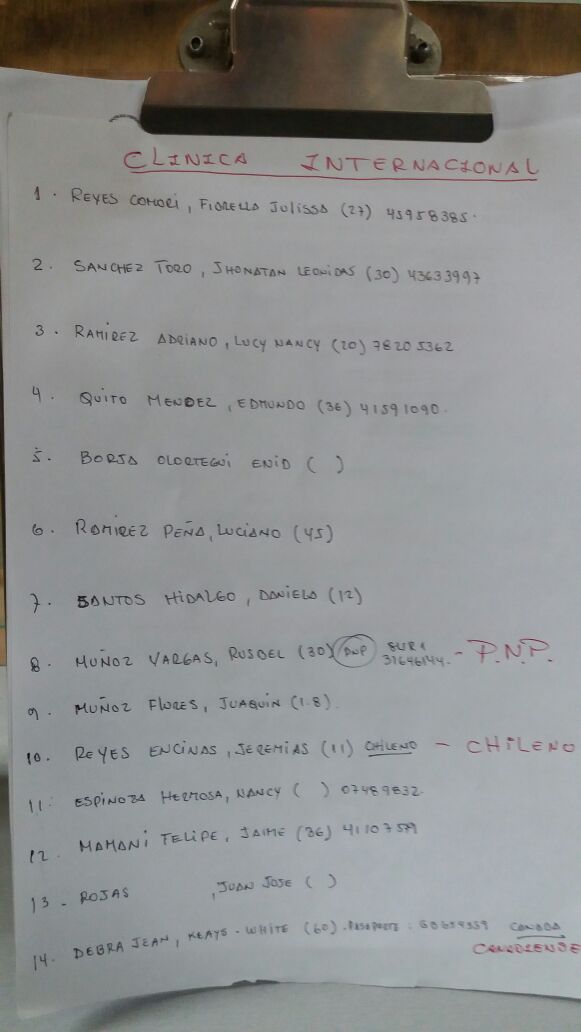 CLINICA INTERNACIONAL
1. REYES COMORI, FIORELLA JULISSA (27) 45958385.
2. SANCHEZ TORO, JHONATAN LEONIDAS (30) 43633997
3. RAMIREZ ADRIANO, LUCY NANCY (20) 78205362
4. QUITO MENDEZ, EDMUNDO (36) 41591090.
5. BORJA OLORTEGUI ENID ( )
6. RAMIREZ PEÑA, LUCIANO (45)
7. SANTOS HIDALGO, DANIELA (12)
8. MUÑOZ VARGAS, RUSBEL (30) 31646144. - P.N.P.
9. MUÑOZ FLORES, JUAQUIN (1.8).
10. REYES ENCINAS, JEREMIAS (11) CHILENO - CHILENO
11. ESPINOZA HERMOSA, NANCY ( ) 07489832.
12. MAMANI FELIPE, JAIME (36)
13 - ROJAS , JUAN JOSE ( )
14. DEBRA JEAN, KEAYS - WHITE (60). PASAPORTE: CANADA
CANADIENSE